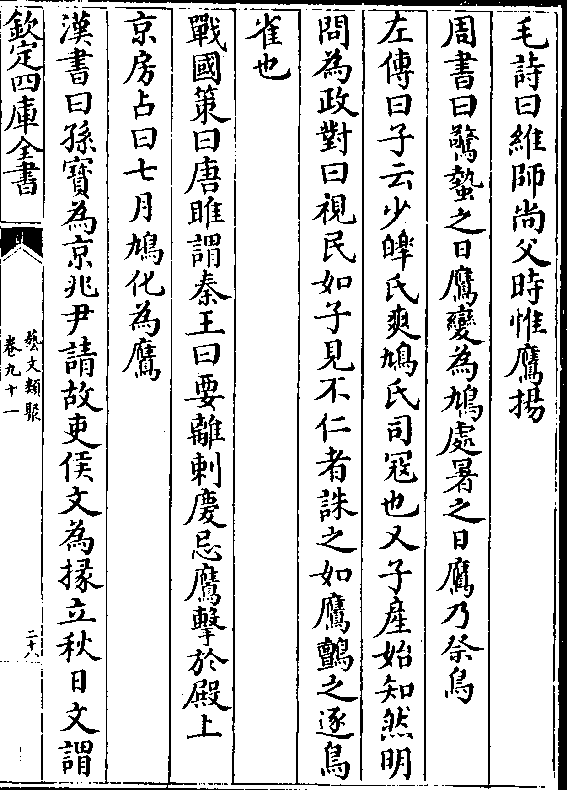 毛詩曰維師尚父時惟鷹揚
周書曰驚蟄之日鷹變為鳩處暑之日鷹乃祭鳥
左傳曰子云少皥氏爽鳩氏司寇也又子産始知然明
問為政對曰視民如子見不仁者誅之如鷹鸇之逐鳥
雀也
戰國策曰唐雎謂秦王曰要離刺慶忌鷹擊於殿上
京房占曰七月鳩化為鷹
漢書曰孫寳為京兆尹請故吏侯文為掾立秋日文謂
欽定四庫全書
藝文類聚
卷九十一
二十八